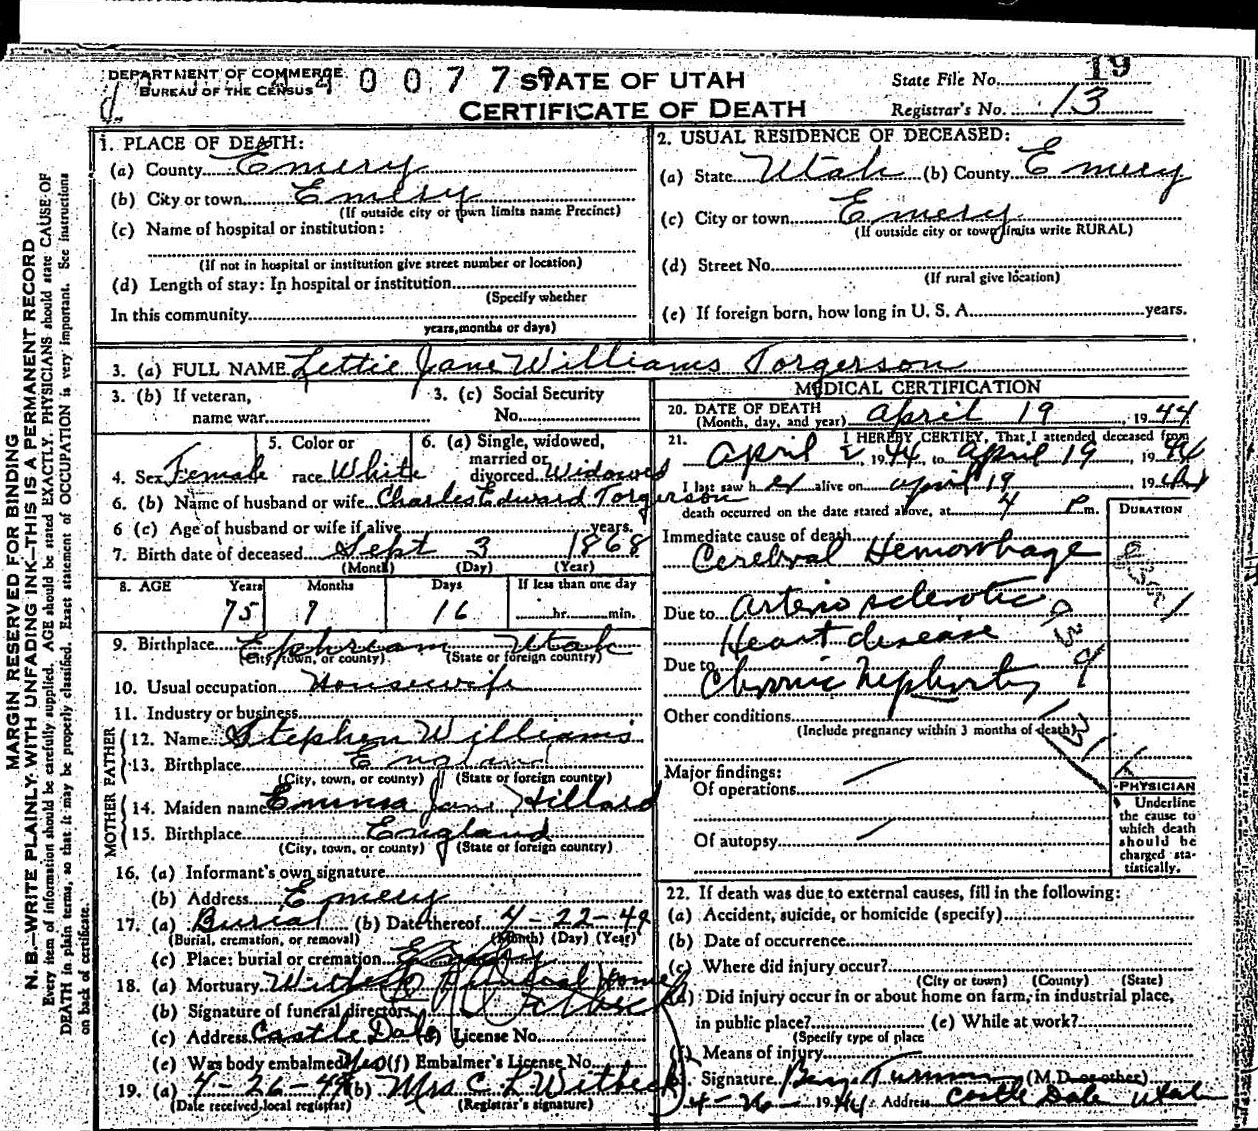 DEPARTMENT OF COMMERCE
BUREAU OF THE CENSUS
STATE OF UTAH
CERTIFICATE OF DEATH
State File No. 19
Registrar's No. 13
MARGIN RESERVED FOR BINDING
N. B.—WRITE PLAINLY WITH UNFADING INK—THIS IS A PERMANENT RECORD
Every item of information should be carefully supplied. AGE should be stated EXACTLY. PHYSICIANS should state CAUSE OF
DEATH in plain terms, so that it may be properly classified. Exact statement of OCCUPATION is very important. See instructions
on back of certificate.
1. PLACE OF DEATH:
(a) County Emery
(b) City or town Emery
(If outside city or town limits name Precinct)
(c) Name of hospital or institution:
(If not in hospital or institution give street number or location)
(d) Length of stay: In hospital or institution
(Specify whether
In this community
years, months or days)
2. USUAL RESIDENCE OF DECEASED:
(a) State Utah (b) County Emery
(c) City or town Emery
(If outside city or town limits write RURAL)
(d) Street No.
(If rural give location)
(e) If foreign born, how long in U. S. A. years.
3. (a) FULL NAME Lettie Jane Williams Torgerson
3. (b) If veteran, name war
3. (c) Social Security No.
4. Sex Female
5. Color or race White
6. (a) Single, widowed, married or divorced Widowed
6. (b) Name of husband or wife Charles Edward Torgerson
6 (c) Age of husband or wife if alive years.
7. Birth date of deceased Sept 3 1868
(Month) (Day) (Year)
8. AGE Years Months Days If less than one day
75 7 16 hr. min.
9. Birthplace Ephream Utah
(City, town, or county) (State or foreign country)
10. Usual occupation Housewife
11. Industry or business
FATHER
12. Name Stephen Williams
13. Birthplace England
(City, town, or county) (State or foreign country)
MOTHER
14. Maiden name Emma Jane Hillard
15. Birthplace England
(City, town, or county) (State or foreign country)
16. (a) Informant's own signature
(b) Address Emery
17. (a) Burial (b) Date thereof 4-22-44
(Burial, cremation, or removal) (Month) (Day) (Year)
(c) Place: burial or cremation Emery
18. (a) Mortuary Witbeck Funeral Home
(b) Signature of funeral director
(c) Address Castle Dale License No.
(e) Was body embalmed Yes (f) Embalmer's License No.
19. (a) 4-26-44 (b) Mrs C L Witbeck
(Date received local registrar) (Registrar's signature)
MEDICAL CERTIFICATION
20. DATE OF DEATH
(Month, day, and year) April 19, 1944
21. I HEREBY CERTIFY, That I attended deceased from
April 2, 1944, to April 19, 1944
I last saw her alive on April 19 1944
death occurred on the date stated above, at 4 P. m.
DURATION
Immediate cause of death
Cerebral Hemorrhage
Due to Arterio sclerotic
Heart disease
Due to
Chronic Nephritis
Other conditions
(Include pregnancy within 3 months of death)
Major findings:
Of operations
Of autopsy
PHYSICIAN
Underline
the cause to
which death
should be
charged sta-
tistically.
22. If death was due to external causes, fill in the following:
(a) Accident, suicide, or homicide (specify)
(b) Date of occurrence
(c) Where did injury occur?
(City or town) (County) (State)
(d) Did injury occur in or about home on farm, in industrial place,
in public place? (e) While at work?
(Specify type of place
(f) Means of injury
Signature (M.D. or other)
4-26-1944 Address Castle Dale Utah